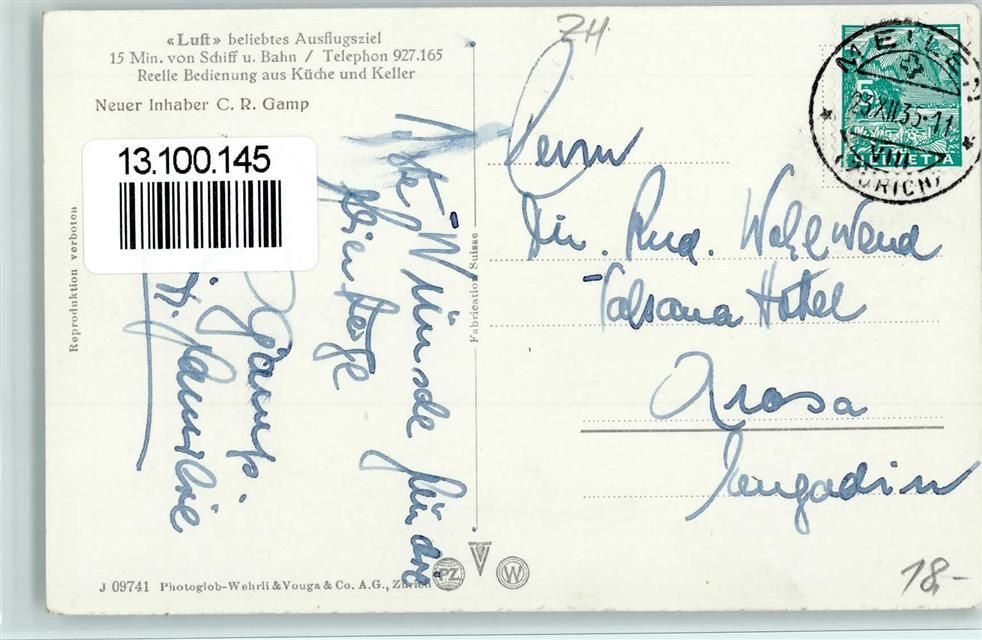 «Luft» beliebtes Ausflugsziel
15 Min. von Schiff u. Bahn / Telephon 927.165
Reelle Bedienung aus Küche und Keller
Neuer Inhaber C. R. Gamp
13.100.145
Reproduktion verboten
Fabrication Suisse
Beste Wünsche für die
Feiertage
Gamp.
u. Familie
ZH
MEILEN
(ZÜRICH)
VIII
5
HELVETIA
Herrn
Dir. Rud. Wohlwend
Valsana Hotel
Arosa
Engadin
J 09741 Photoglob-Wehrli & Vouga & Co. A.G., Zürich
PZ
V
W
18.-